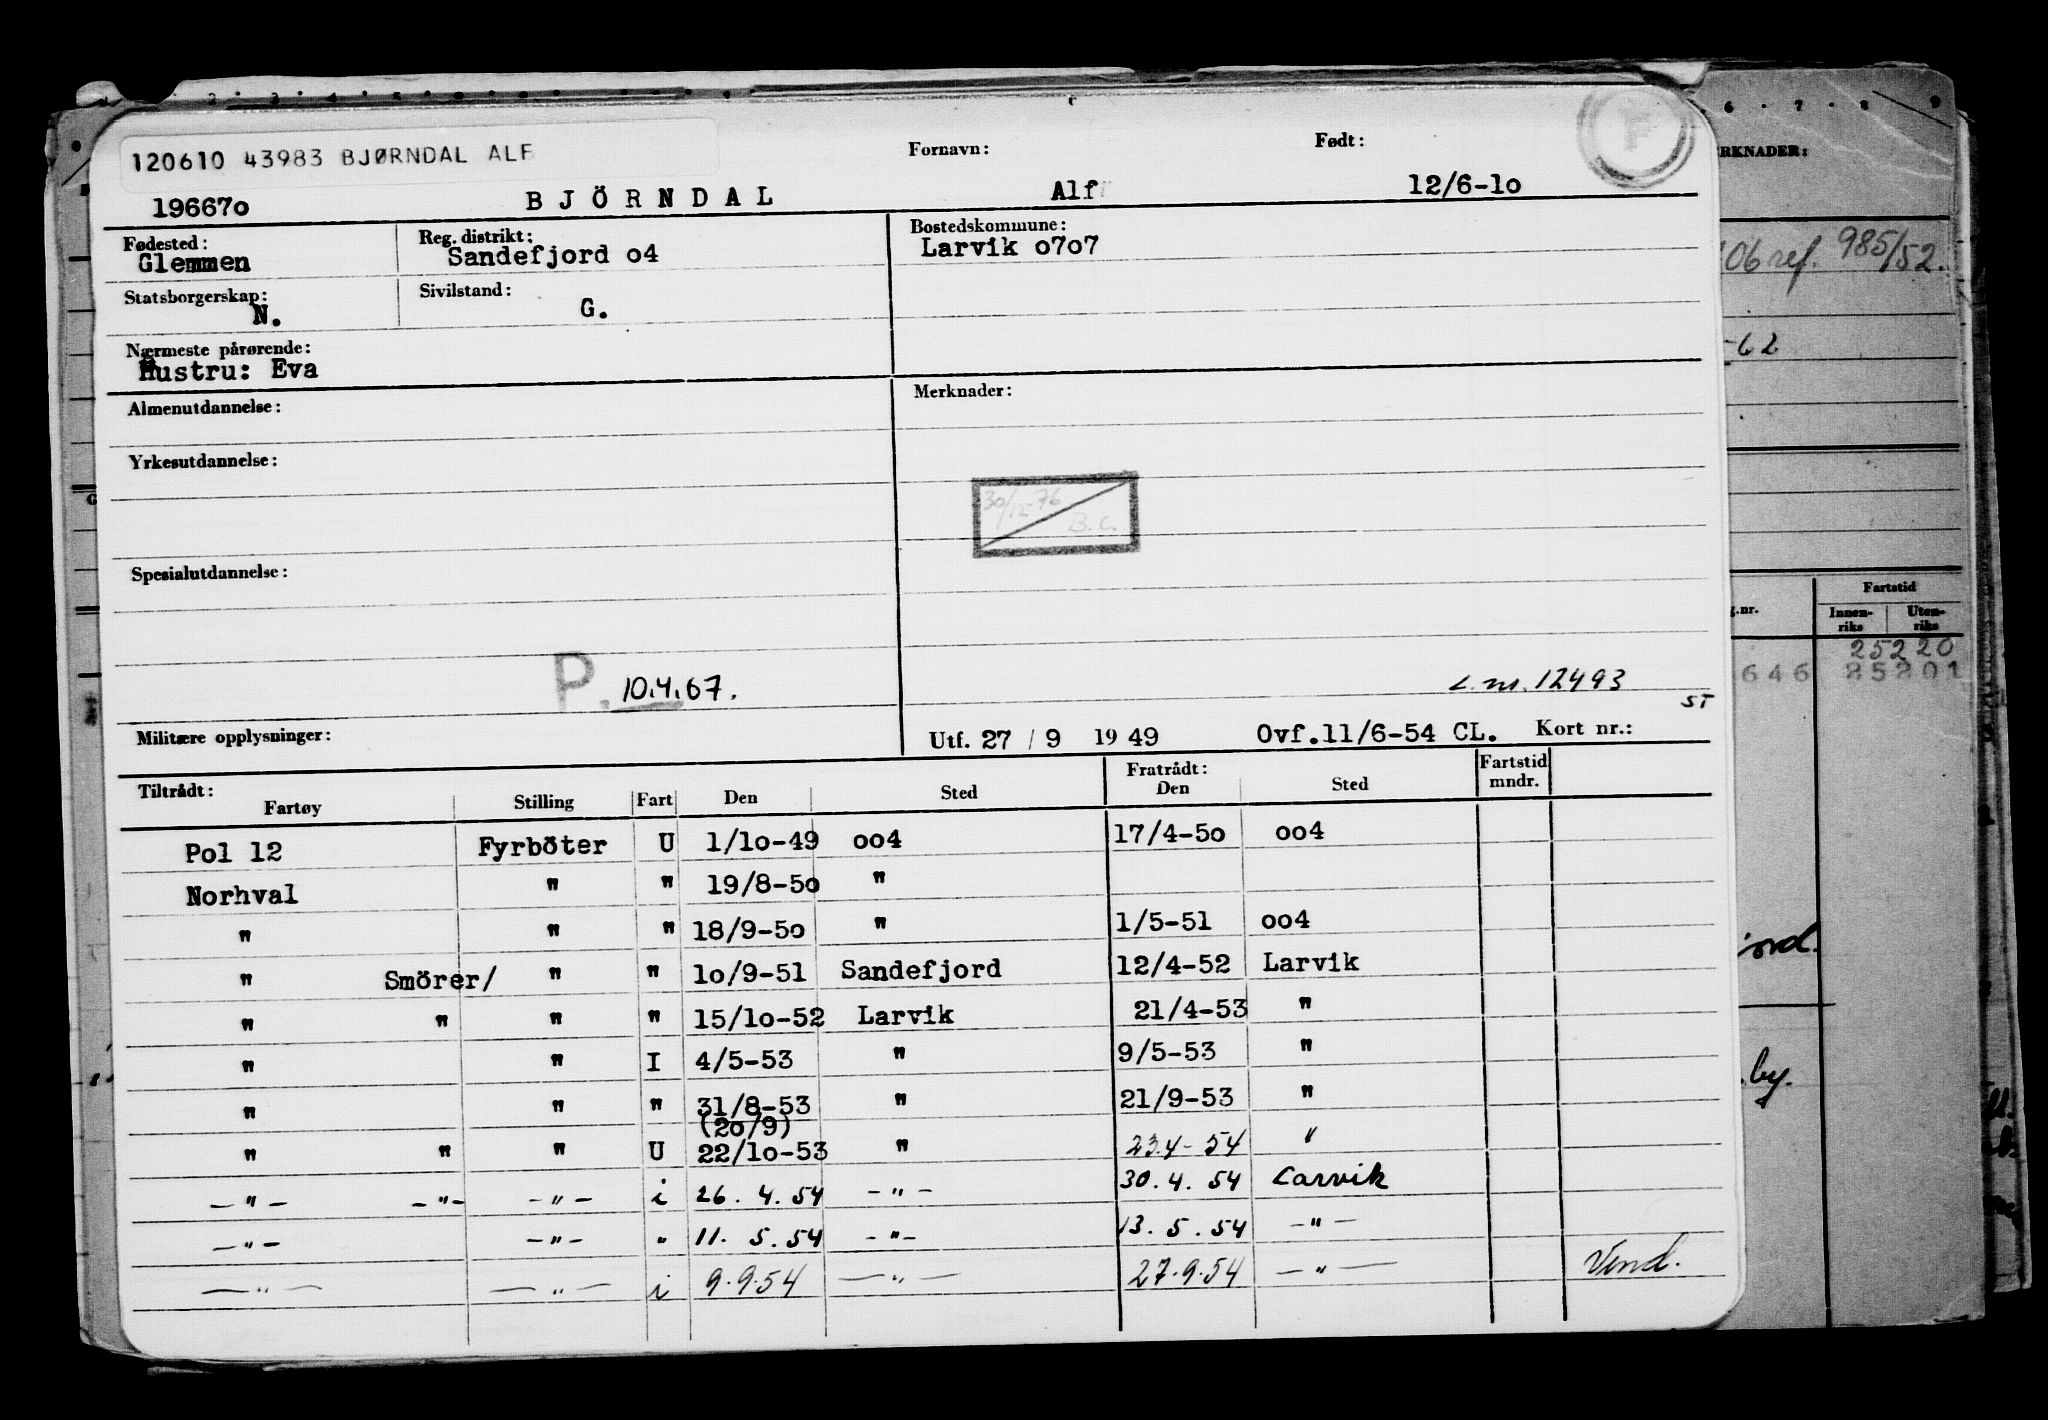 120610 43983 BJØRNDAL ALF
Fornavn: Født:
19667o BJÖRNDAL Alf 12/6-1o
Fødested: Reg. distrikt: Bostedskommune:
Glemmen Sandefjord o4 Larvik o7o7
Statsborgerskap: Sivilstand:
N. G.
Nærmeste pårørende:
Hustru: Eva
Almenutdannelse: Merknader:
Yrkesutdannelse:
30/12-76 B.C.
Spesialutdannelse:
P. 10.4.67. L.nr. 12493
ST
Militære opplysninger: Utf. 27 / 9 19 49 Ovf.11/6-54 CL. Kort nr.:
Tiltrådt: Fratrådt: Fartstid
Fartøy Stilling Fart Den Sted Den Sted mndr.
Pol 12 Fyrböter U 1/1o-49 oo4 17/4-5o oo4
Norhval " " 19/8-5o "
" " " 18/9-5o " 1/5-51 oo4
" Smörer/ " " 1o/9-51 Sandefjord 12/4-52 Larvik
" " " " 15/1o-52 Larvik 21/4-53 "
" " I 4/5-53 " 9/5-53 "
" " " 31/8-53 " 21/9-53 "
(2o/9)
" " " U 22/1o-53 " 23.4-54 "
-"- -"- -"- i 26. 4. 54 -"- 30. 4. 54 Larvik
-"- -"- " 11. 5. 54 -"- 13. 5. 54 -"-
-"- -"- i 9.9.54 -"- 27.9.54 -"- Vend.
6 7 8 9
RKNADER:
06 ref. 985/52.
-62
g.nr. Fartstid
Innen-riks Uten-riks
252 20
646 25201
ord.
by.